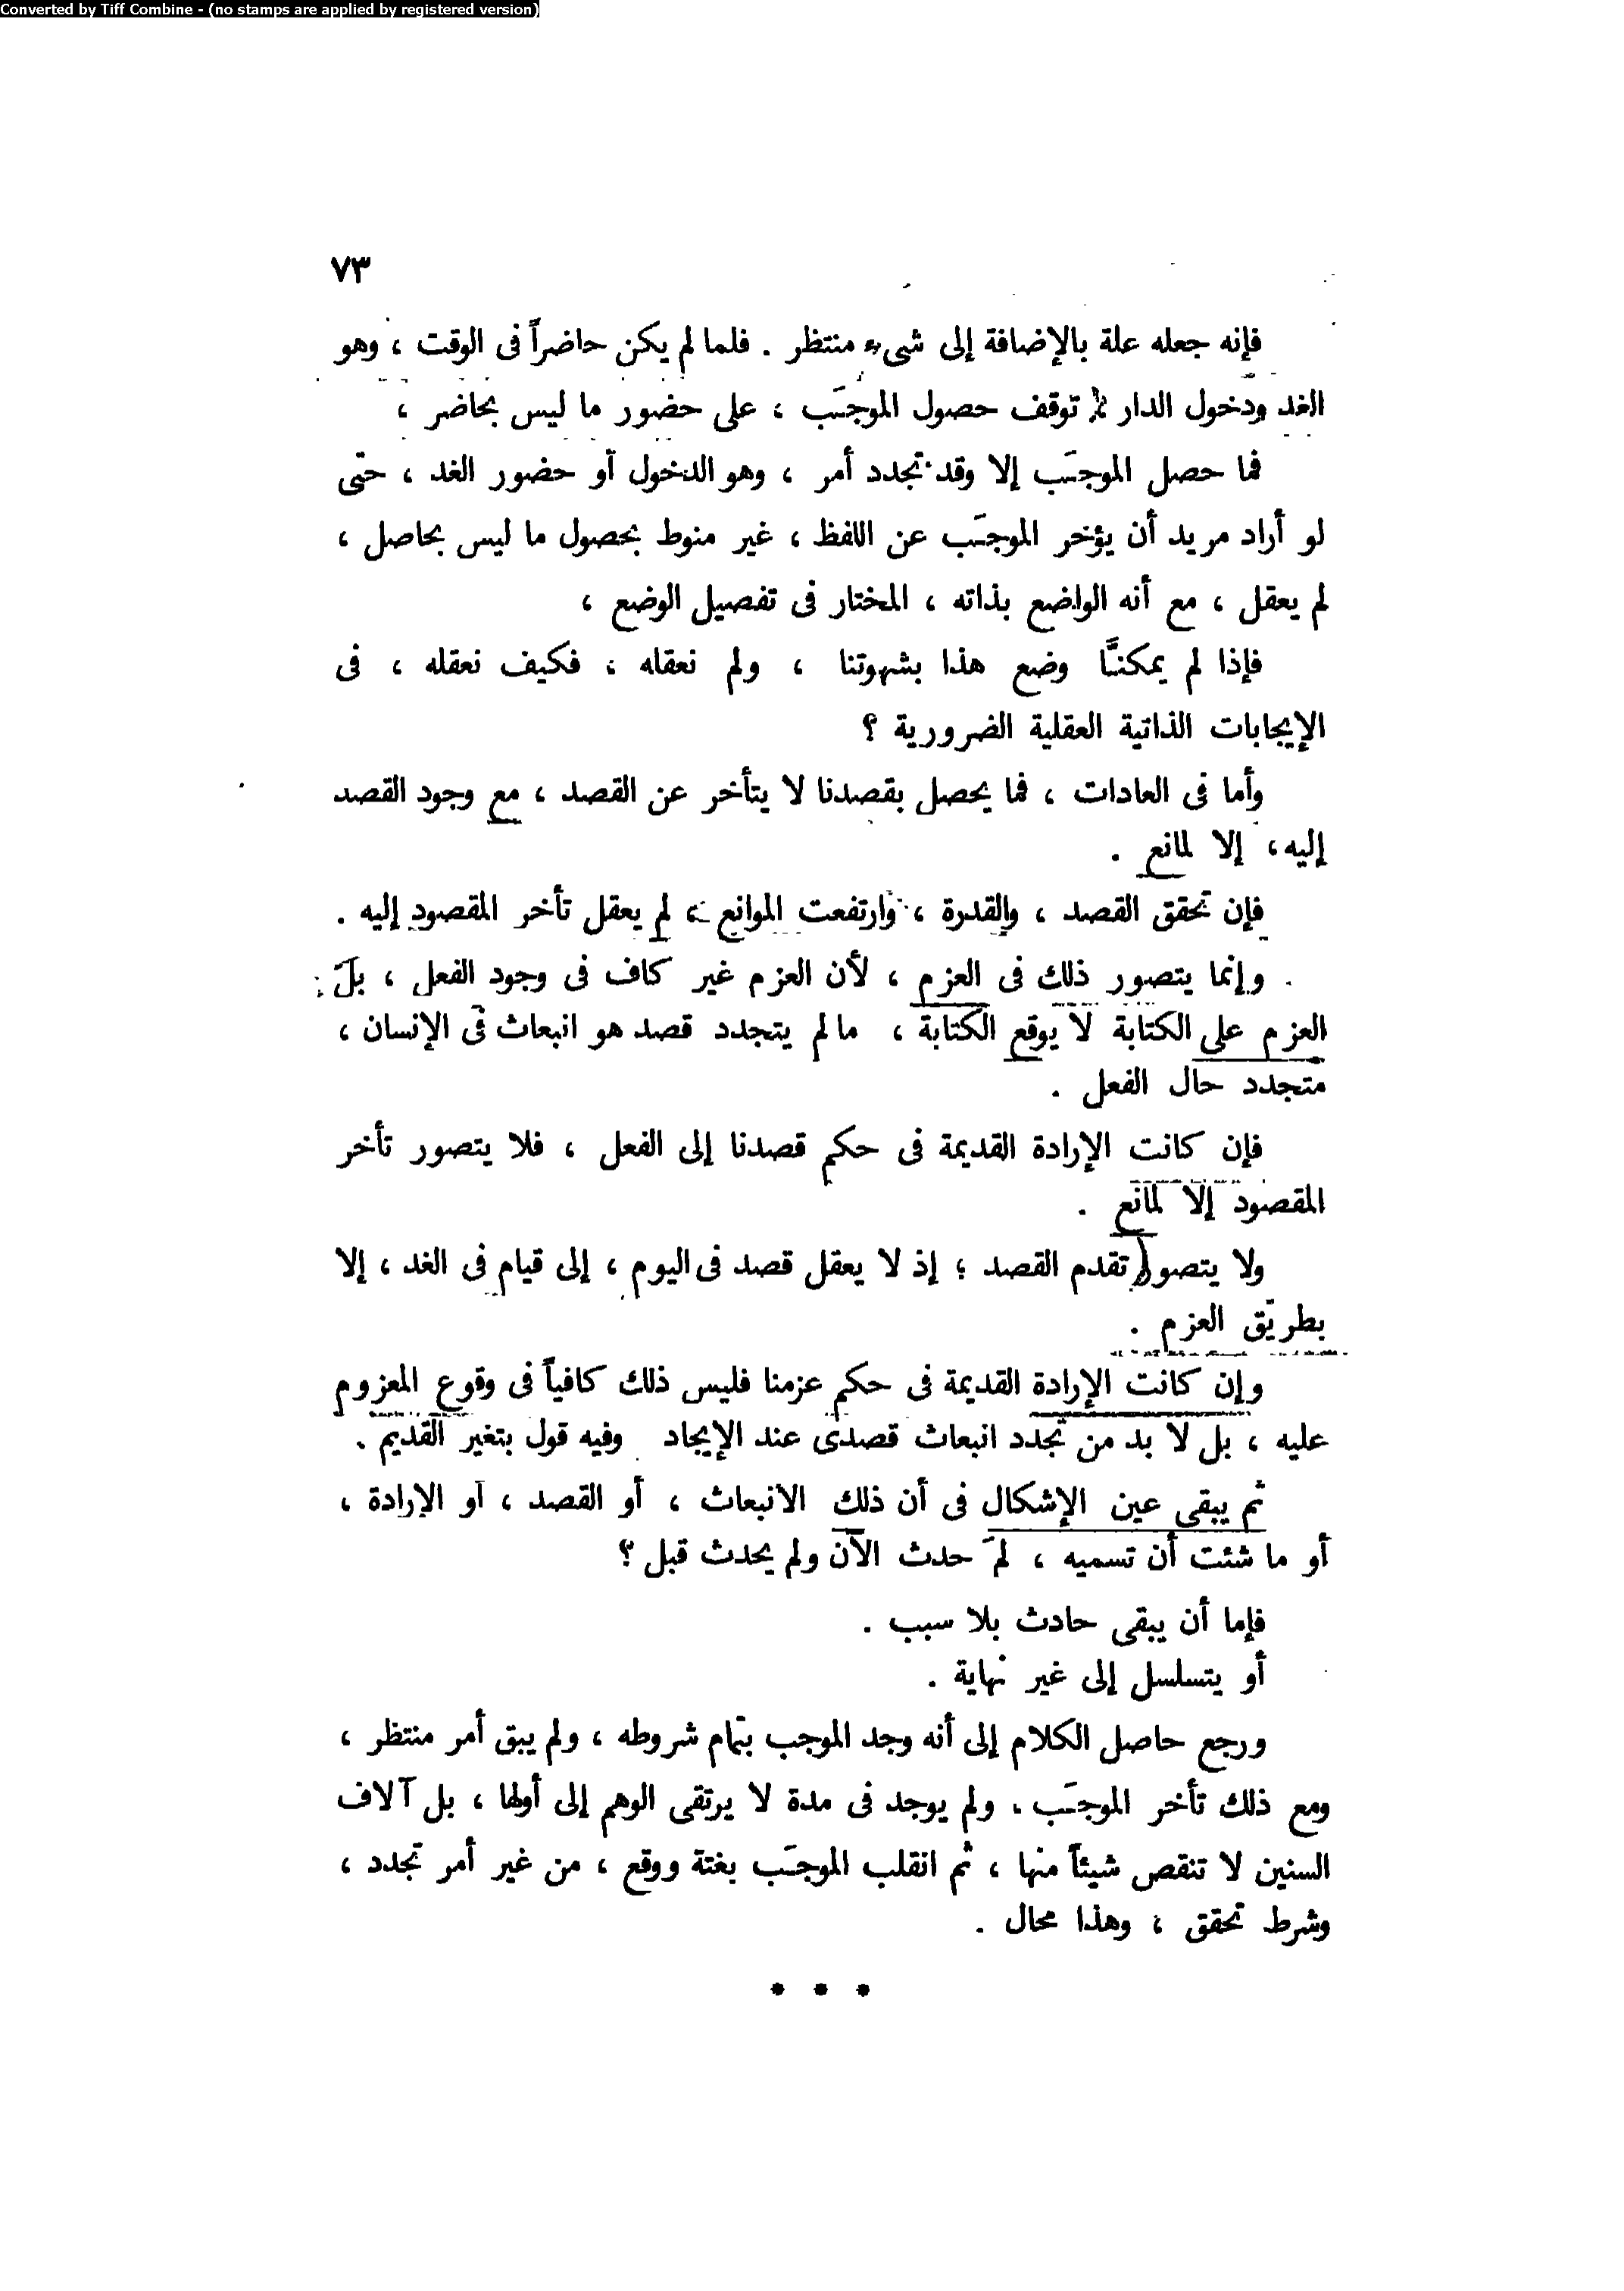 Converted by Tiff Combine - (no stamps are applied by registered version)
٧٣
فإنه جعله علة بالإضافة إلى شىء منتظر . فلما لم يكن حاضراً فى الوقت ، وهو
الغد ودخول الدار ، توقف حصول الموجَب ، على حضور ما ليس بحاضر ،
فما حصل الموجَب إلا وقد تجدد أمر ، وهو الدخول أو حضور الغد ، حتى
لو أراد مريد أن يؤخر الموجَب عن اللفظ ، غير منوط بحصول ما ليس بحاصل ،
لم يعقل ، مع أنه الواضع بذاته ، المختار فى تفصيل الوضع ،
فإذا لم يمكنَّا وضع هذا بشهوتنا ، ولم نعقله ، فكيف نعقله ، فى
الإيجابات الذاتية العقلية الضرورية ؟
وأما فى العادات ، فما يحصل بقصدنا لا يتأخر عن القصد ، مع وجود القصد
إليه ، إلا لمانع .
فإن تحقق القصد ، والقدرة ، وارتفعت الموانع ، لم يعقل تأخر المقصود إليه .
وإنما يتصور ذلك فى العزم ، لأن العزم غير كاف فى وجود الفعل ، بل
العزم على الكتابة لا يوقع الكتابة ، ما لم يتجدد قصد هو انبعاث فى الإنسان ،
متجدد حال الفعل .
فإن كانت الإرادة القديمة فى حكم قصدنا إلى الفعل ، فلا يتصور تأخر
المقصود إلا لمانع .
ولا يتصور تقدم القصد ؛ إذ لا يعقل قصد فى اليوم ، إلى قيام فى الغد ، إلا
بطريق العزم .
وإن كانت الإرادة القديمة فى حكم عزمنا فليس ذلك كافياً فى وقوع المعزوم
عليه ، بل لا بد من تجدد انبعاث قصدى عند الإيجاد وفيه قول بتغير القديم .
ثم يبقى عين الإشكال فى أن ذلك الانبعاث ، أو القصد ، أو الإرادة ،
أو ما شئت أن تسميه ، لمَ حدث الآن ولم يحدث قبل ؟
فإما أن يبقى حادث بلا سبب .
أو يتسلسل إلى غير نهاية .
ورجع حاصل الكلام إلى أنه وجد الموجب بتمام شروطه ، ولم يبق أمر منتظر ،
ومع ذلك تأخر الموجَب ، ولم يوجد فى مدة لا يرتقى الوهم إلى أولها ، بل آلاف
السنين لا تنقص شيئاً منها ، ثم انقلب الموجَب بغتة ووقع ، من غير أمر تجدد ،
وشرط تحقق ، وهذا محال .
* * *